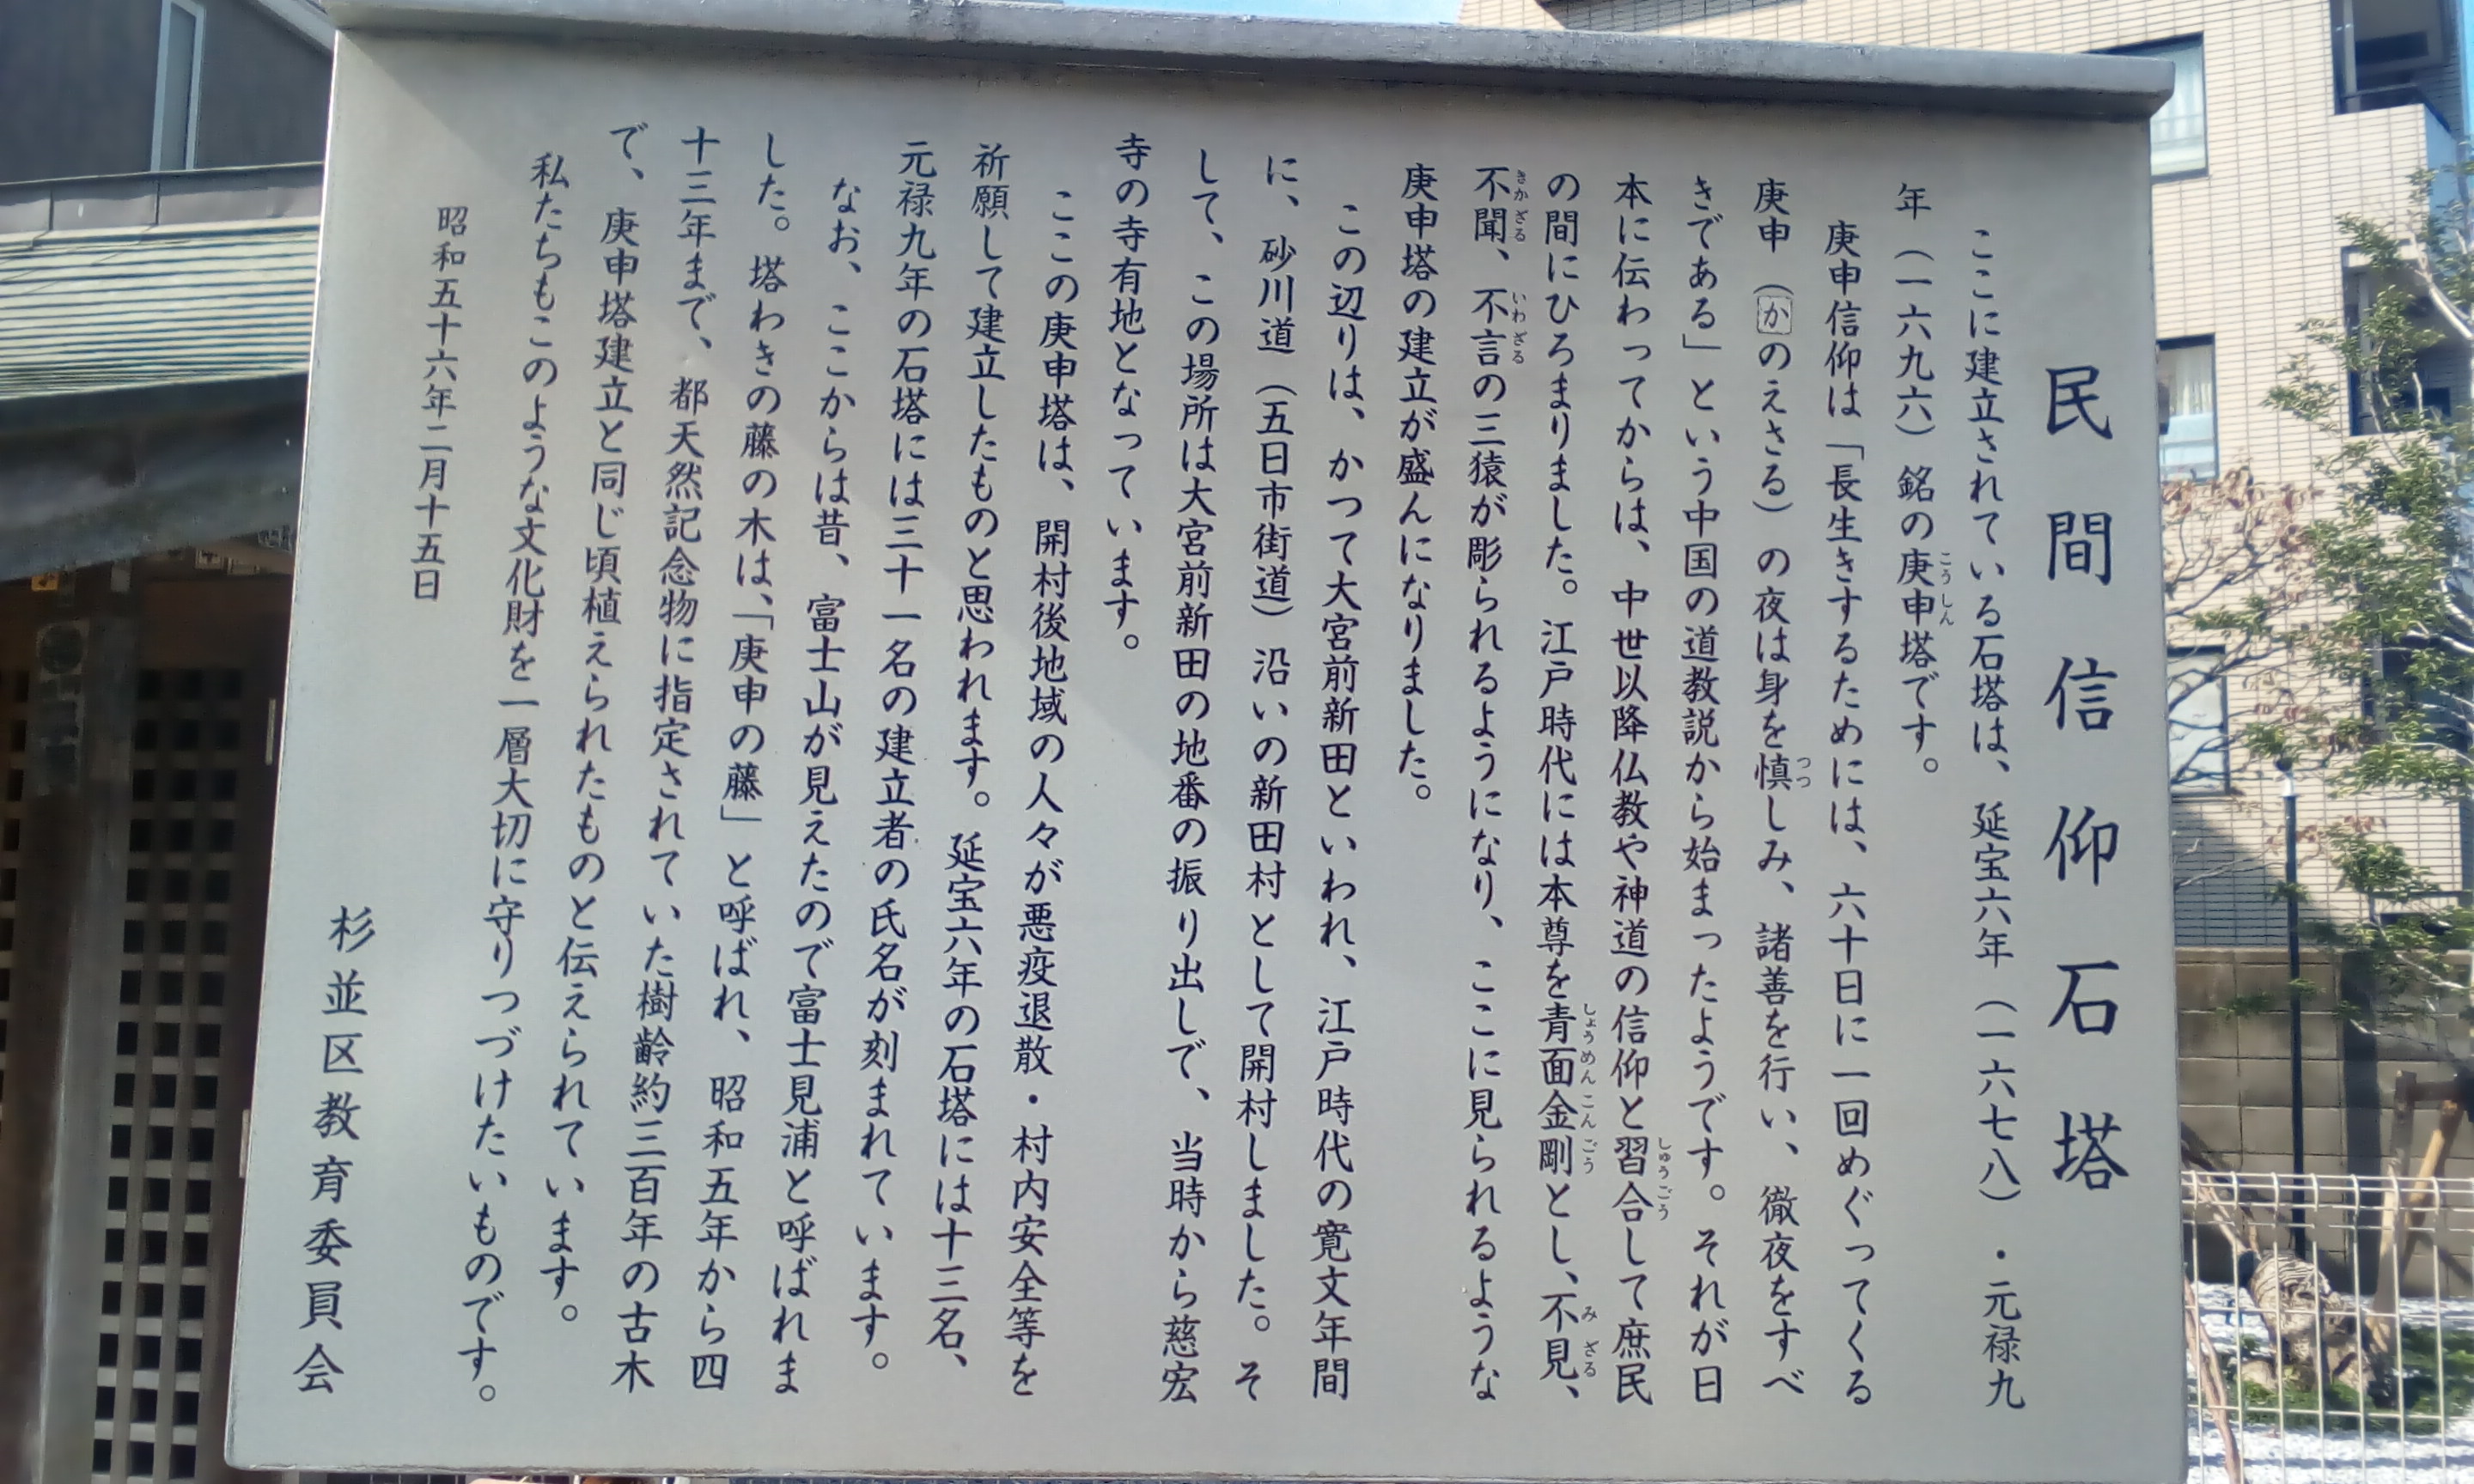 民間信仰石塔
ここに建立されている石塔は、延宝六年（一六七八）・元禄九
年（一六九六）銘の庚申塔です。
庚申信仰は「長生きするためには、六十日に一回めぐってくる
庚申（かのえさる）の夜は身を慎しみ、諸善を行い、徹夜をすべ
きである」という中国の道教説から始まったようです。それが日
本に伝わってからは、中世以降仏教や神道の信仰と習合して庶民
の間にひろまりました。江戸時代には本尊を青面金剛とし、不見、
不聞、不言の三猿が彫られるようになり、ここに見られるような
庚申塔の建立が盛んになりました。
この辺りは、かつて大宮前新田といわれ、江戸時代の寛文年間
に、砂川道（五日市街道）沿いの新田村として開村しました。そ
して、この場所は大宮前新田の地番の振り出しで、当時から慈宏
寺の寺有地となっています。
ここの庚申塔は、開村後地域の人々が悪疫退散・村内安全等を
祈願して建立したものと思われます。延宝六年の石塔には十三名、
元禄九年の石塔には三十一名の建立者の氏名が刻まれています。
なお、ここからは昔、富士山が見えたので富士見浦と呼ばれま
した。塔わきの藤の木は、「庚申の藤」と呼ばれ、昭和五年から四
十三年まで、都天然記念物に指定されていた樹齢約三百年の古木
で、庚申塔建立と同じ頃植えられたものと伝えられています。
私たちもこのような文化財を一層大切に守りつづけたいものです。
昭和五十六年二月十五日
杉並区教育委員会